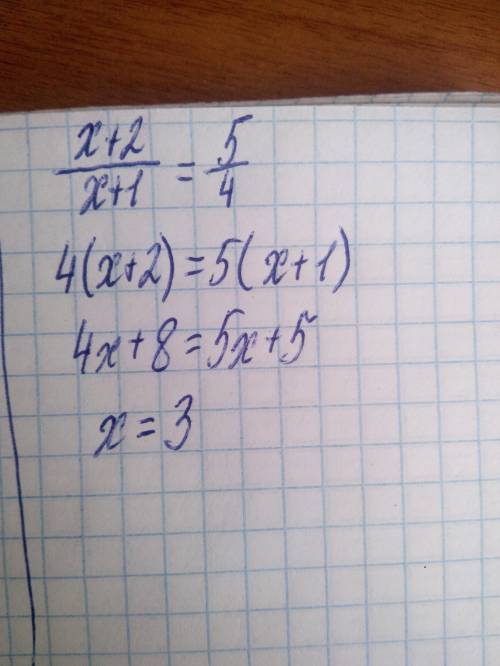 x+2/x+1 = 5/4
4(x+2)=5(x+1)
4x+8=5x+5
x=3